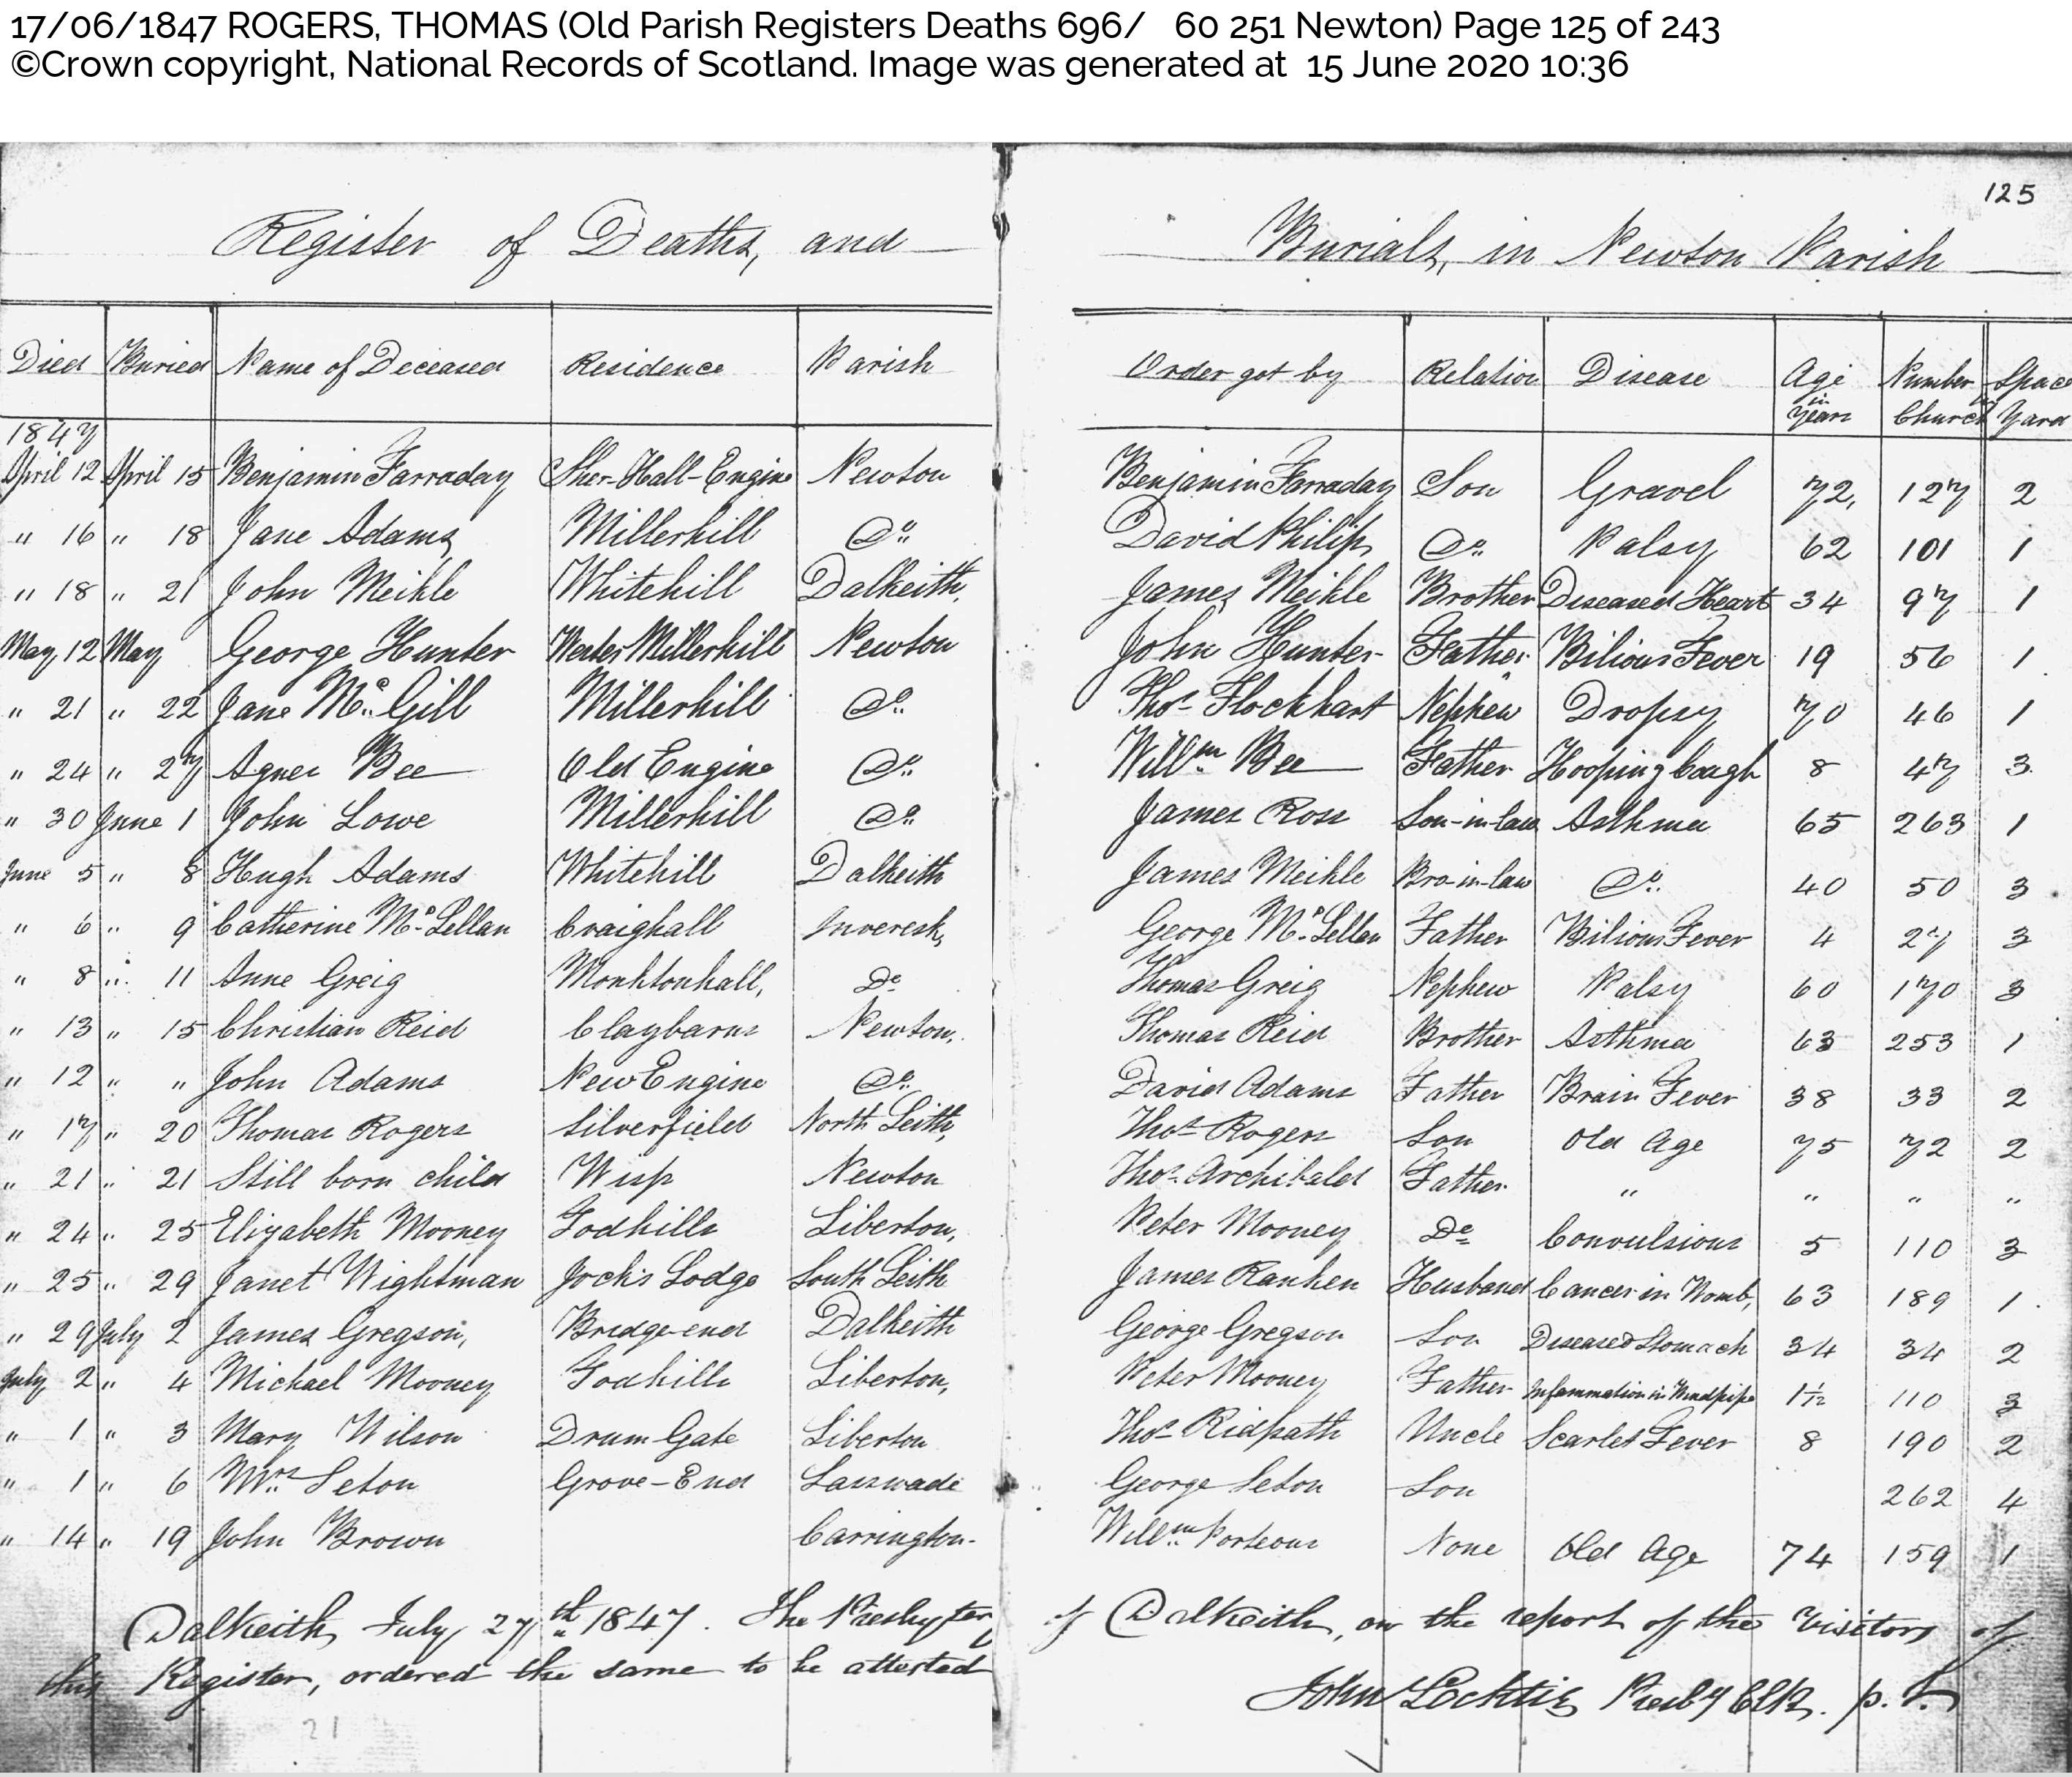 17/06/1847 ROGERS, THOMAS (Old Parish Registers Deaths 696/ 60 251 Newton) Page 125 of 243
©Crown copyright, National Records of Scotland. Image was generated at 15 June 2020 10:36
125
Register of Deaths, and Burials, in Newton Parish
Died Buried Name of Deceased Residence Parish Order got by Relation Disease Age in Years Number in Church Space Yard
1847
April 12 April 15 Benjamin Farraday Sher-Hall-Engine Newton Benjamin Farraday Son Gravel 72, 127 2
" 16 " 18 Jane Adams Millerhill Do David Philip Do Palsy 62 101 1
" 18 " 21 John Meikle Whitehill Dalkeith, James Meikle Brother Diseased Heart 34 97 1
May 12 May George Hunter Wester Millerhill Newton John Hunter Father Bilious Fever 19 56 1
" 21 " 22 Jane Mc Gill Millerhill Do Thos Flockhart Nephew Dropsy 70 46 1
" 24 " 27 Agnes Bee Old Engine Do Willm Bee Father Hooping Cough 8 47 3
" 30 June 1 John Lowe Millerhill Do James Ross Son-in-law Asthma 65 263 1
June 5 " 8 Hugh Adams Whitehill Dalkeith James Meikle Bro-in-law Do 40 50 3
" 6 " 9 Catherine Mc Lellan Craighall Inveresk, George Mc Lellan Father Bilious Fever 4 27 3
" 8 " 11 Anne Greig Monktonhall, Do Thomas Greig Nephew Palsy 60 170 3
" 13 " 15 Christian Reid Claybarns Newton, Thomas Reid Brother Asthma 63 253 1
" 12 " " John Adams New Engine Do David Adams Father Brain Fever 38 33 2
" 17 " 20 Thomas Rogers Silverfield North Leith, Thos Rogers Son Old Age 75 72 2
" 21 " 21 Still born child Wisp Newton Thos Archibald Father " " " "
" 24 " 25 Elizabeth Mooney Todhills Liberton, Peter Mooney Do Convulsions 5 110 3
" 25 " 29 Janet Wightman Jock's Lodge South Leith James Ranken Husband Cancer in Womb, 63 189 1
" 29 July 2 James Gregson, Bridge-end Dalkeith George Gregson Son Diseased Stomach 34 34 2
July 2 " 4 Michael Mooney Todhills Liberton, Peter Mooney Father Inflammation in Windpipe 1½ 110 3
" 1 " 3 Mary Wilson Drum Gate Liberton Thos Ridpath Uncle Scarlet Fever 8 190 2
" 1 " 6 Mrs Seton Grove-End Lasswade George Seton Son 262 4
" 14 " 19 John Brown Carrington Willm Porteous None Old Age 74 159 1
Dalkeith July 27th 1847. The Presbytery of Dalkeith, on the report of the Visitors of
this Register, ordered the same to be attested
John Presby Clk. p. t.
21